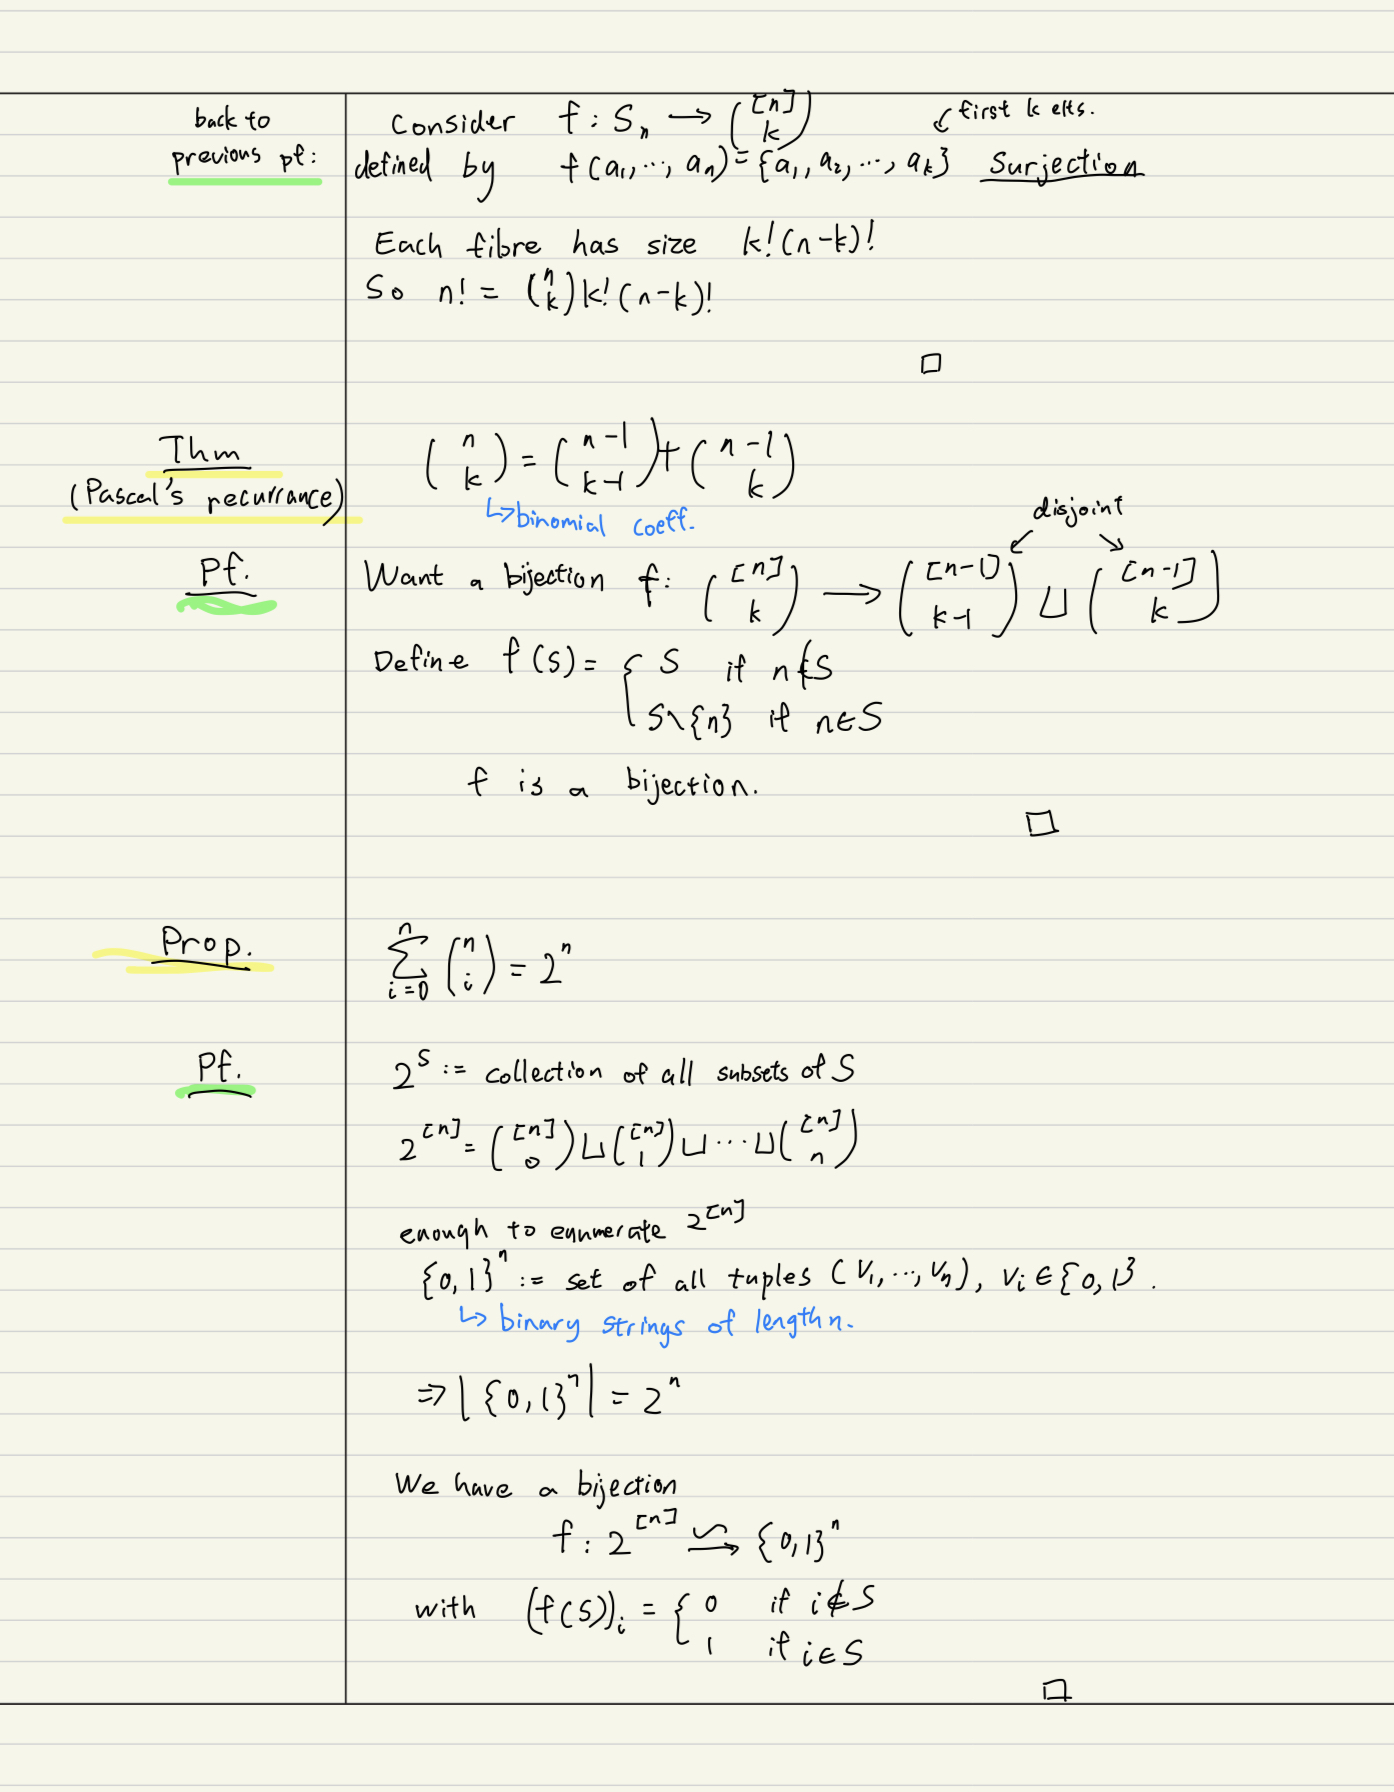 back to
previous pf:
Consider f : Sₙ → ([n] k)
↙ first k elts.
defined by f(a₁, ..., aₙ) = {a₁, a₂, ..., aₖ} Surjection
Each fibre has size k!(n-k)!
So n! = (n k) k!(n-k)!
□
Thm
(Pascal's recurrance)
(n k) = (n-1 k-1) + (n-1 k)
↳ binomial coeff.
disjoint
↙ ↘
Pf.
Want a bijection f: ([n] k) → ([n-1] k-1) ⊔ ([n-1] k)
Define f(S) = { S if n∉S
S∖{n} if n∈S
f is a bijection.
□
Prop.
∑ᵢ₌₀ⁿ (n i) = 2ⁿ
Pf.
2^S := collection of all subsets of S
2^[n] = ([n] 0) ⊔ ([n] 1) ⊔ ... ⊔ ([n] n)
enough to eunmerate 2^[n]
{0,1}ⁿ := set of all tuples (V₁, ..., Vₙ), Vᵢ ∈ {0,1}.
↳ binary strings of length n.
⇒ |{0,1}ⁿ| = 2ⁿ
We have a bijection
f : 2^[n] ⥲ {0,1}ⁿ
with (f(S))ᵢ = { 0 if i∉S
1 if i∈S
□